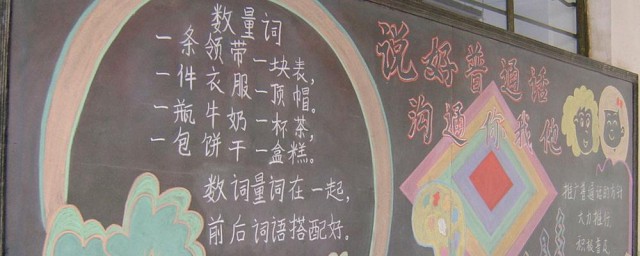 数量词
一条领带一块表，
一件衣服一顶帽。
一瓶牛奶一杯茶，
一包饼干一盒糕。
数词量词在一起，
前后词语搭配好。
说好普通话
沟通你我他
推广普通话的方针
大力推行
积极普及